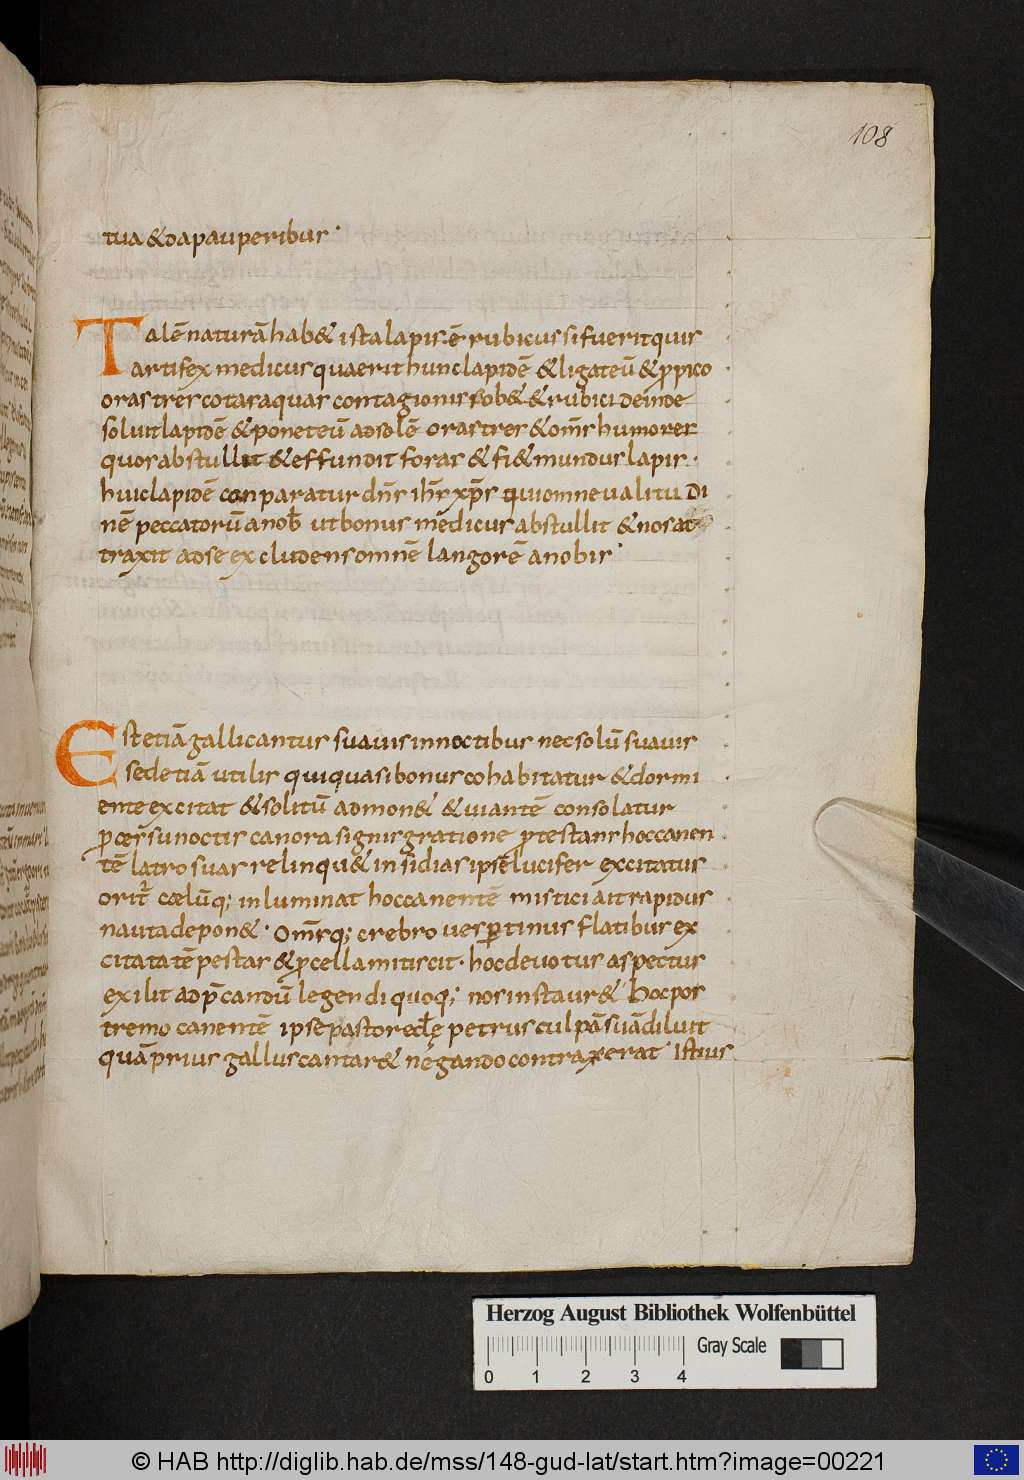 108
tua & da pauperibus·
Talē naturā hab& ista lapis. ē rubicus si fuerit quis
artifex medicus quaerit hunc lapidē & ligat eū & ꝓpico
oras tres cotaraquas contagionis & rubici deinde
soluit lapidē & ponet eū ad solē oras tres & om̄s humores
quos abstullit & effundit foras & fi& mundus lapis·
huic lapidē conparatur dn̄s ih̄s xp̄s qui omne ualitudi
nē peccatorū a nob̄ ut bonus medicus abstullit & nos at
traxit ad se excludens omnē langorē a nobis·
Est etiā galli cantus suauis in noctibus nec solū suauis
sed etiā utilis qui quasi bonus cohabitatur & dormi
ente excitat & solitū admon& & uiantē consolatur
ꝓcersu noctis canora signis gratione ꝓtestans hoc canen
tē latro suas relinqu& insidias ipse lucifer excitatus
orit̄ cœlūq; inluminat hoc canentē mistici ait rapidus
nauta depon&· Om̄sq; crebro uespertinus flatibus ex
citata tēpestas & ꝓcella mitiscit· hoc deuotus aspectus
exilit ad p̄candū legendi quoq; nos instaur& hoc pos
tremo canentē ipse pastor ecl̄ę petrus culpā suā diluit
quā prius gallus cantar& negando contraxerat· Istius
Herzog August Bibliothek Wolfenbüttel
Gray Scale
0 1 2 3 4
© HAB http://diglib.hab.de/mss/148-gud-lat/start.htm?image=00221